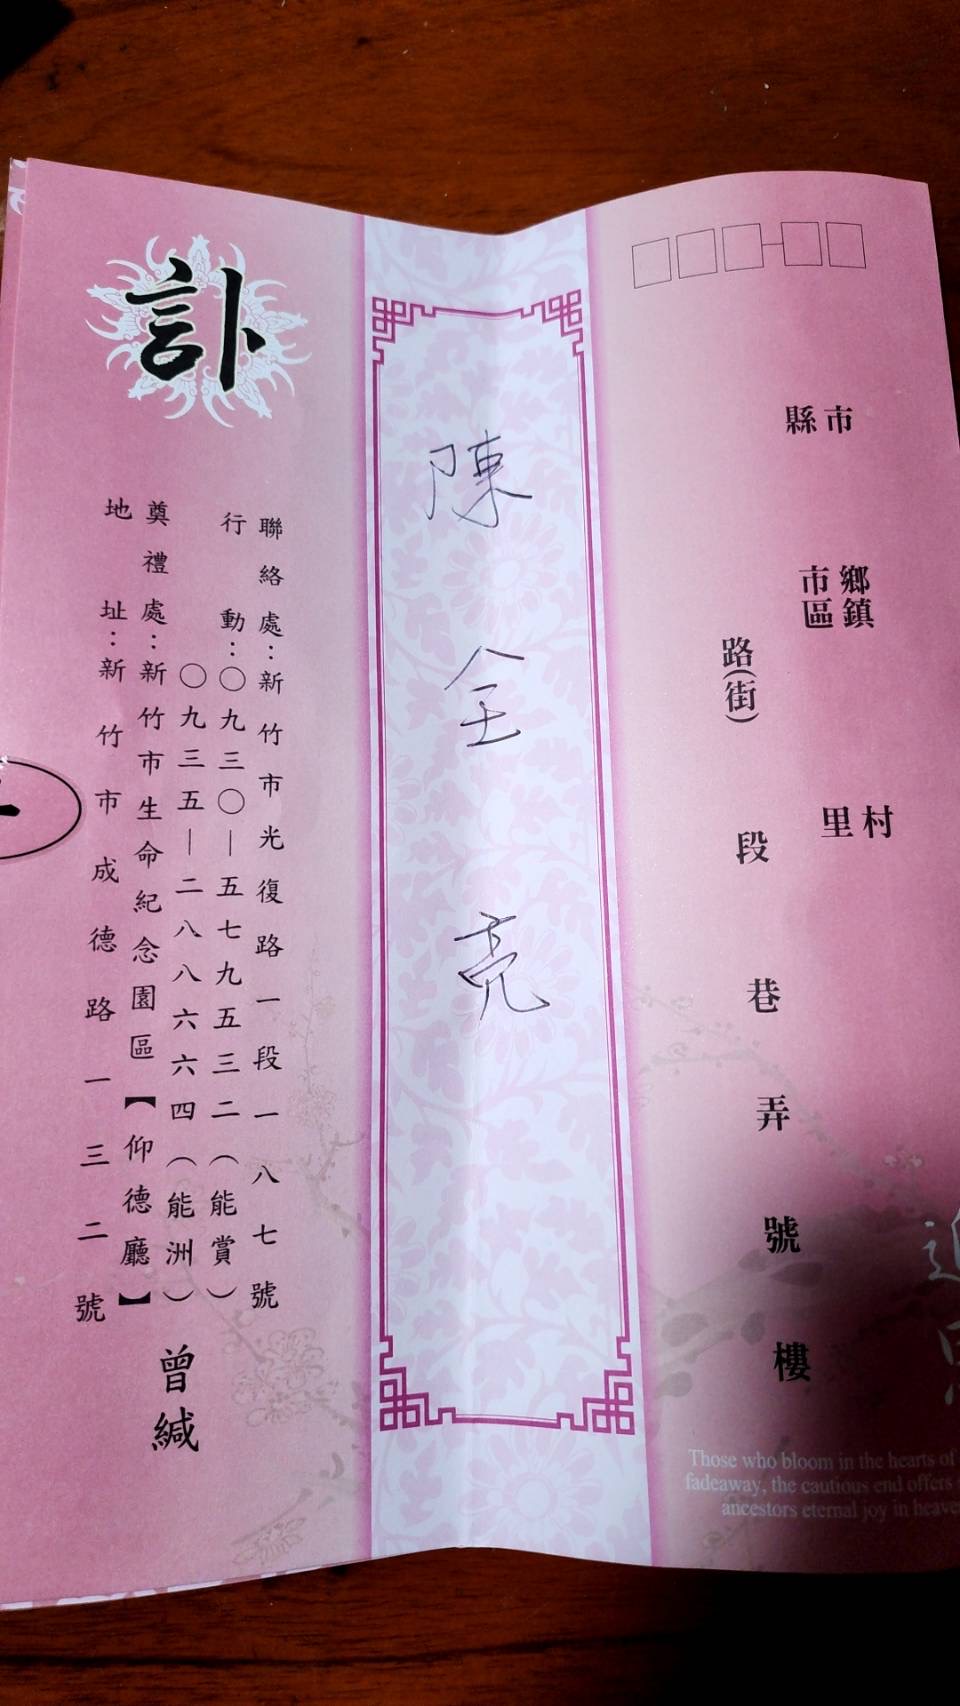 縣市
鄉鎮
市區
村
里
路(街)
段
巷
弄
號
樓
陳全亮
訃
聯絡處：新竹市光復路一段一八七號
行動：〇九三〇－五七九五三二（能賞）
〇九三五－二八八六六四（能洲）
奠禮處：新竹市生命紀念園區【仰德廳】
地址：新竹市成德路一三二號
曾緘
Those who bloom in the hearts of
fadeaway, the cautious end offers
ancestors eternal joy in heave